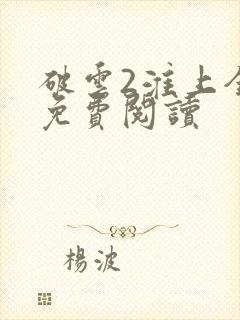 破雲2淮上全
免費閱讀
楊波